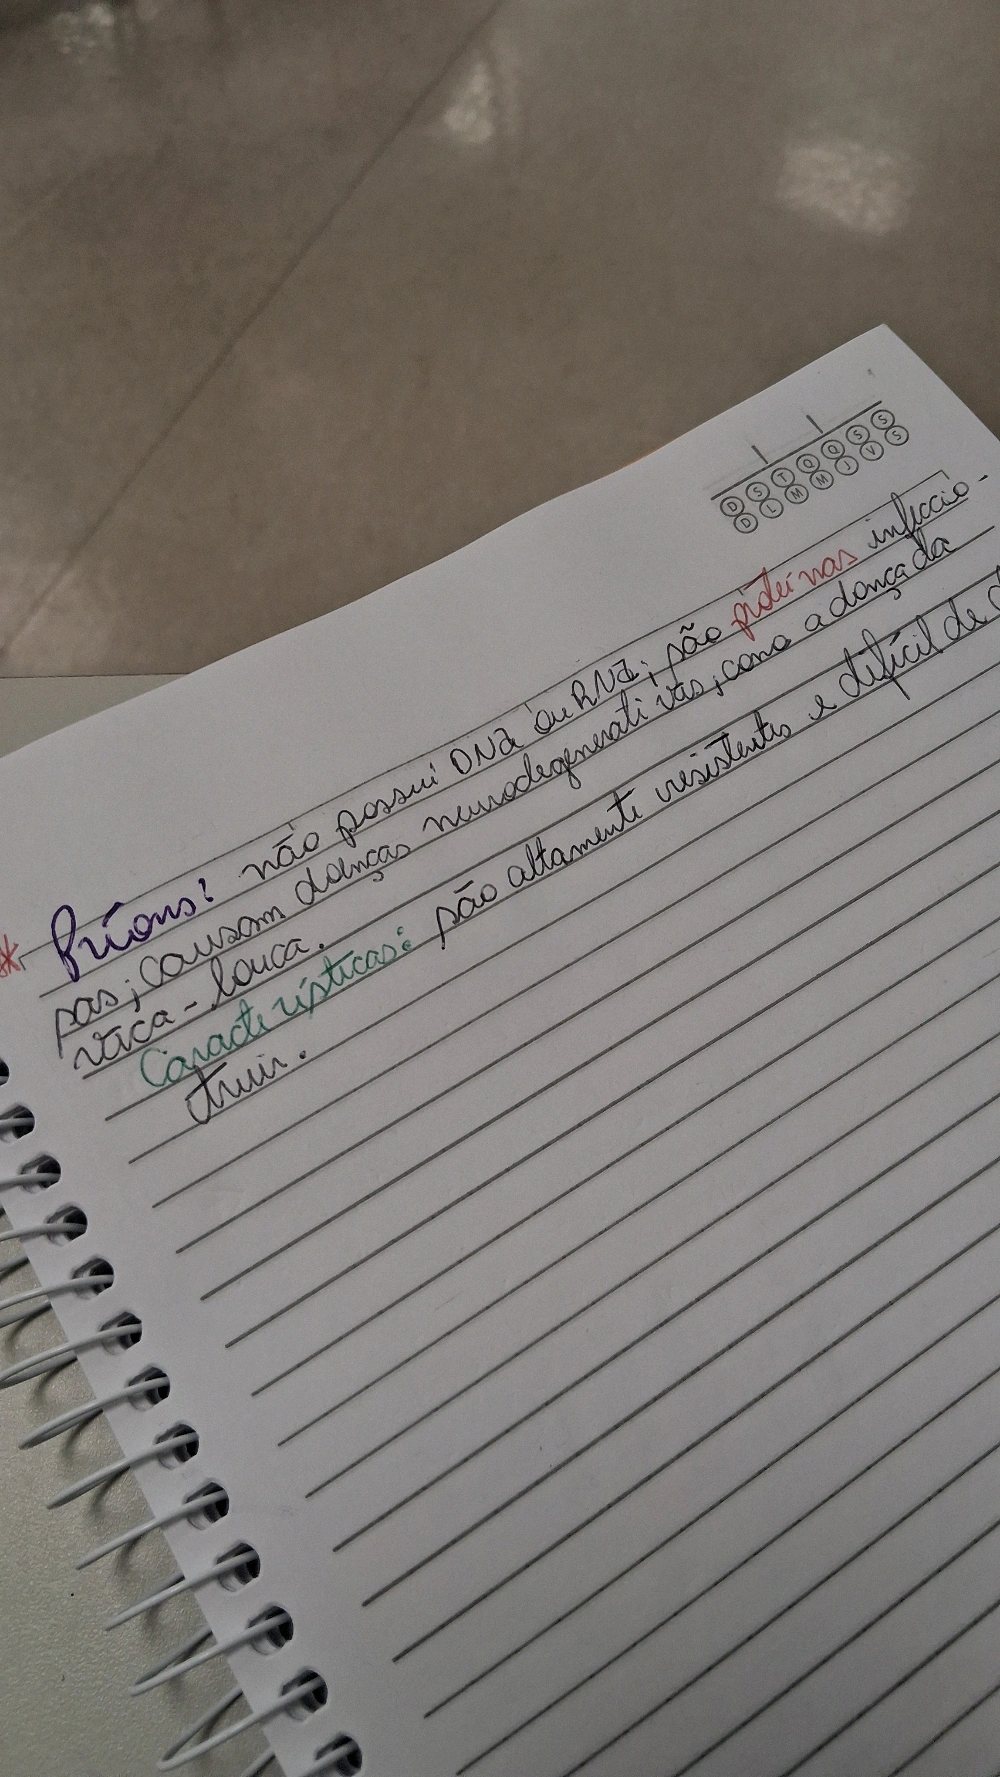 D S T Q Q S S
D L M M J V S
* Príons: não possui DNA ou RNA; são proteínas infeccio-
sas; causam doenças neurodegenerativas, como a doença da
vaca-louca.
Características: são altamente resistentes e difícil de
truir.